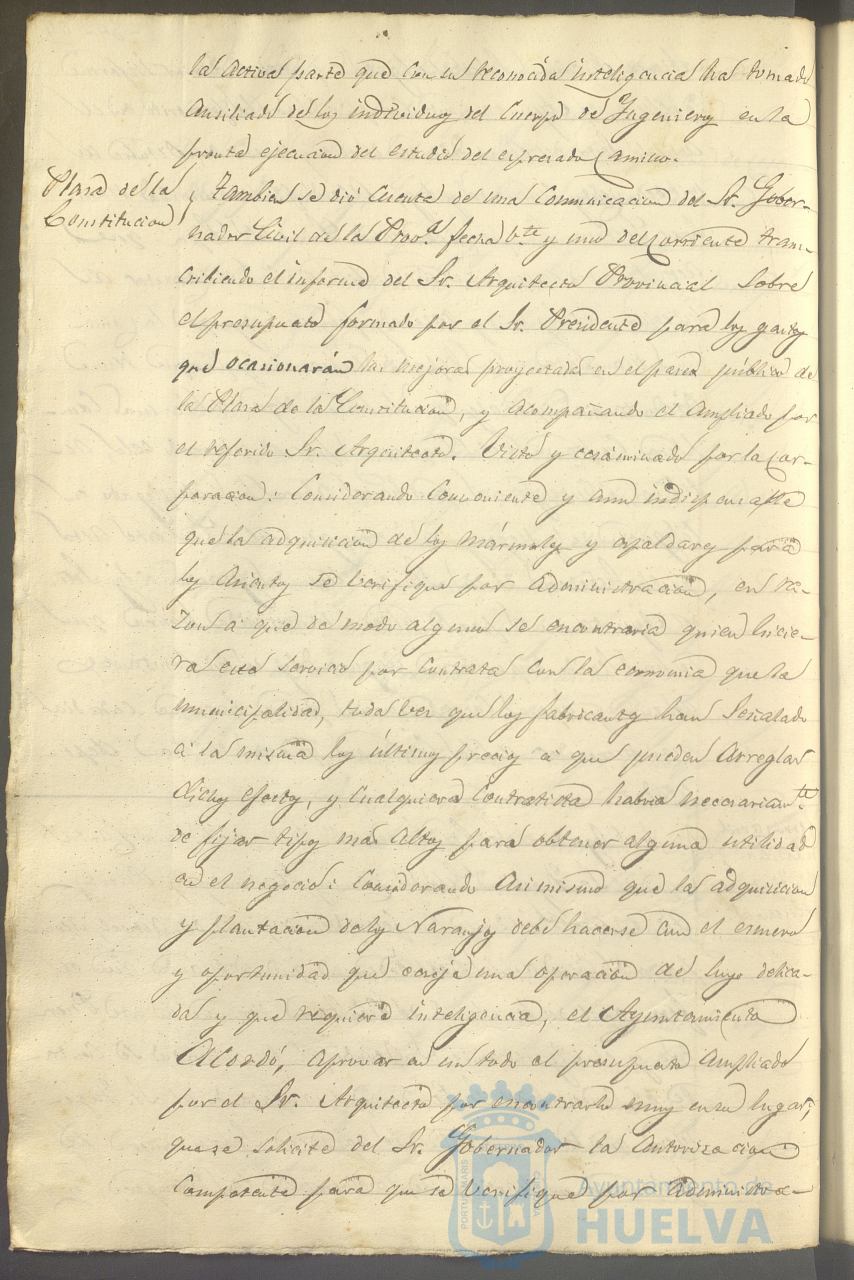 la activa parte que con su reconocida inteligencia ha tomado
ausiliado de los individuos del Cuerpo de Ingenieros en la
pronta ejecucion del estudio del espresado Camino.
Plaza de la
Constitucion
Tambien se dió cuenta de una comunicacion del Sr. Gober-
nador Civil de la Prov.al fecha b.te y uno del corriente trans-
cribiendo el informe del Sr. Arquitecto Provincial sobre
el presupuesto formado por el Sr. Presidente para los gastos
que ocasionarán las mejoras proyectadas en el paseo público de
la Plaza de la Constitucion, y acompañando el ampliado por
el referido Sr. Arquitecto. Visto y ecsaminado por la Cor-
poracion: Considerando conveniente y aun indispensable
que la adquisicion de los mármoles y espaldares para
los asientos se verifique por administracion, en ra-
zon a que de modo alguno se encontraria quien hicie-
ra este servicio por contrata con la economia que la
municipalidad, toda vez que los fabricantes han señalado
a la misma los últimos precios a que pueden arreglar
dichos efectos, y cualquiera contratista habria necesariam.te
de fijar tipos mas altos para obtener alguna utilidad
en el negocio: Considerando asimismo que la adquisicion
y plantacion de los Naranjos debe hacerse con el esmero
y oportunidad que ecsije una operacion de suyo delica-
da y que requiere inteligencia, el Ayuntamiento
Acordó, aprovar en un todo el presupuesto ampliado
por el Sr. Arquitecto por encontrarlo muy en su lugar;
que se solicite del Sr. Gobernador la autorizacion
competente para que se verifique por administra-
Ayuntamiento de
HUELVA